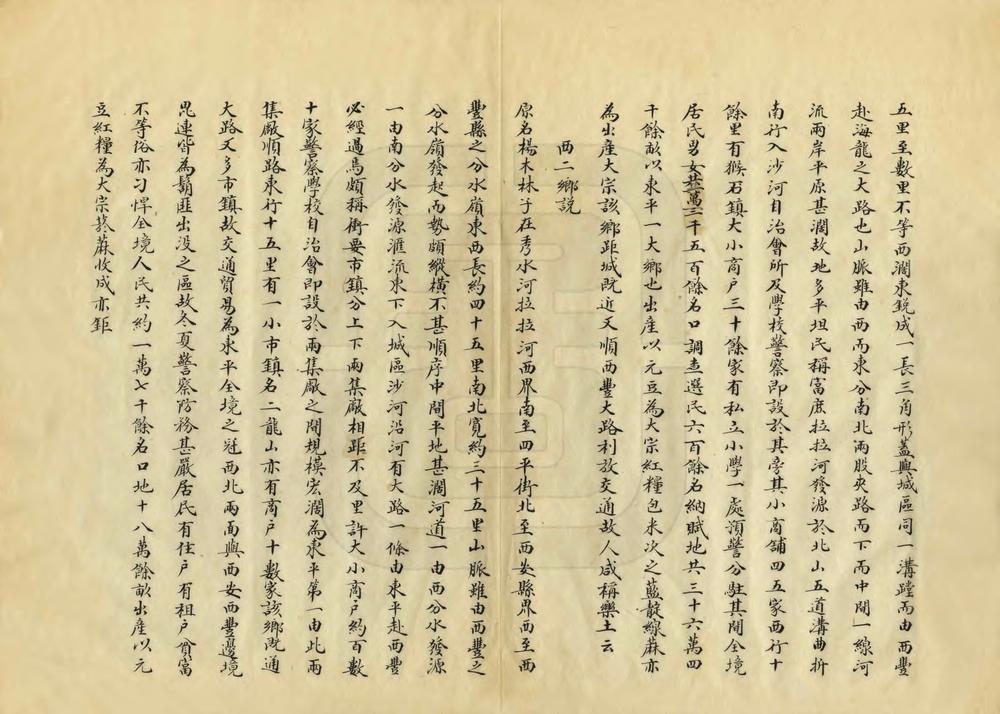 五里至數里不等西濶東銳成一長三角形蓋與城區同一溝蹚而由西豐
赴海龍之大路也山脈雖由西而東分南北兩股夾路而下而中間一線河
流兩岸平原甚濶故地多平坦民稱富庶拉拉河發源於北山五道溝曲折
南行入沙河自治會所及學校警察即設於其旁其小商舖四五家西行十
餘里有猴石鎮大小商户三十餘家有私立小學一處預警分駐其間全境
居民男女共萬三千五百餘名口調查選民六百餘名納賦地共三十六萬四
千餘畝以東平一大鄉也出產以元豆為大宗紅糧包米次之藍靛線蔴亦
為出產大宗該鄉距城既近又順西豐大路利於交通故人咸稱樂土云
西二鄉説
原名楊木林子在秀水河拉拉河西界南至四平街北至西安縣界西至西
豐縣之分水嶺東西長約四十五里南北寬約三十五里山脈雖由西豐之
分水嶺發起而勢頗縱橫不甚順序中間平地甚濶河道一由西分水發源
一由南分水發源滙流東下入城區沙河沿河有大路一條由東平赴西豐
必經過焉頗稱衝要市鎮分上下兩集廠相距不及里許大小商户約百數
十家警察學校自治會即設於兩集廠之間規模宏濶為東平第一由此兩
集廠順路東行十五里有一小市鎮名二龍山亦有商户十數家該鄉既通
大路又多市鎮故交通貿易為東平全境之冠西北兩面與西安西豐邊境
毘連皆為鬍匪出沒之區故冬夏警察防務甚嚴居民有住户有租户貧富
不等俗亦刁悍全境人民共約一萬七千餘名口地十八萬餘畝出產以元
豆紅糧為大宗菸蔴收成亦鉅